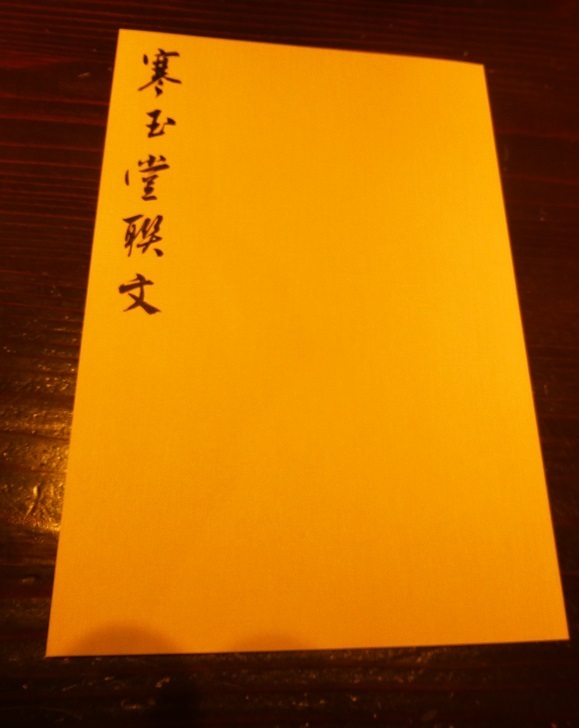 寒玉堂聯文